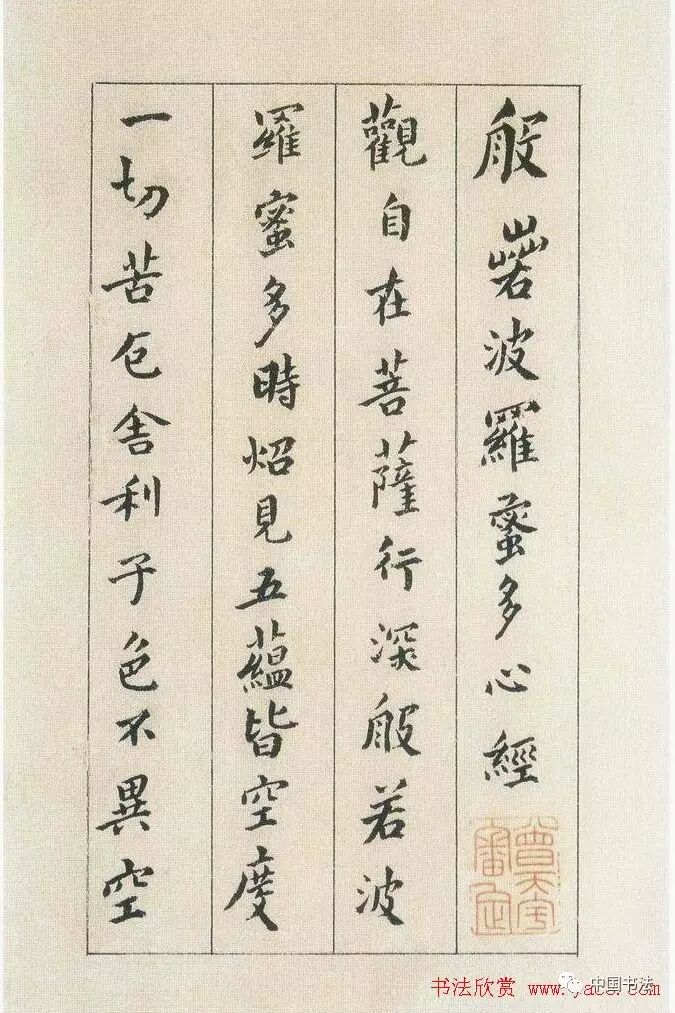 般若波羅蜜多心經
觀自在菩薩行深般若波
羅蜜多時炤見五蘊皆空度
一切苦厄舍利子色不異空
中国书法
书法欣赏 www.yac8.com